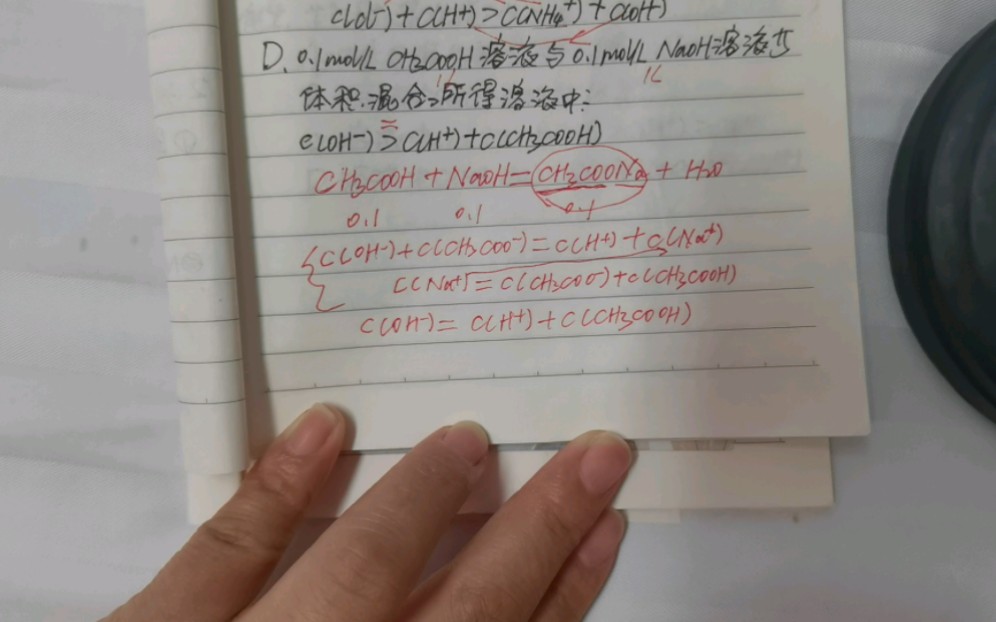 c(Cl⁻)+C(H+)>C(NH₄⁺)+C(OH⁻)
D. 0.1mol/L CH3COOH 溶液与0.1mol/L NaOH溶液等
1L 1L
体积混合,所得溶液中:
=
c(OH⁻)>C(H+)+C(CH3COOH)
CH3COOH+NaOH=CH3COONa+H2O
0.1 0.1 0.1
{C(OH⁻)+C(CH3COO⁻)=C(H+)+C(Na+)
C(Na+)=C(CH3COO⁻)+C(CH3COOH)
C(OH⁻)=C(H+)+C(CH3COOH)